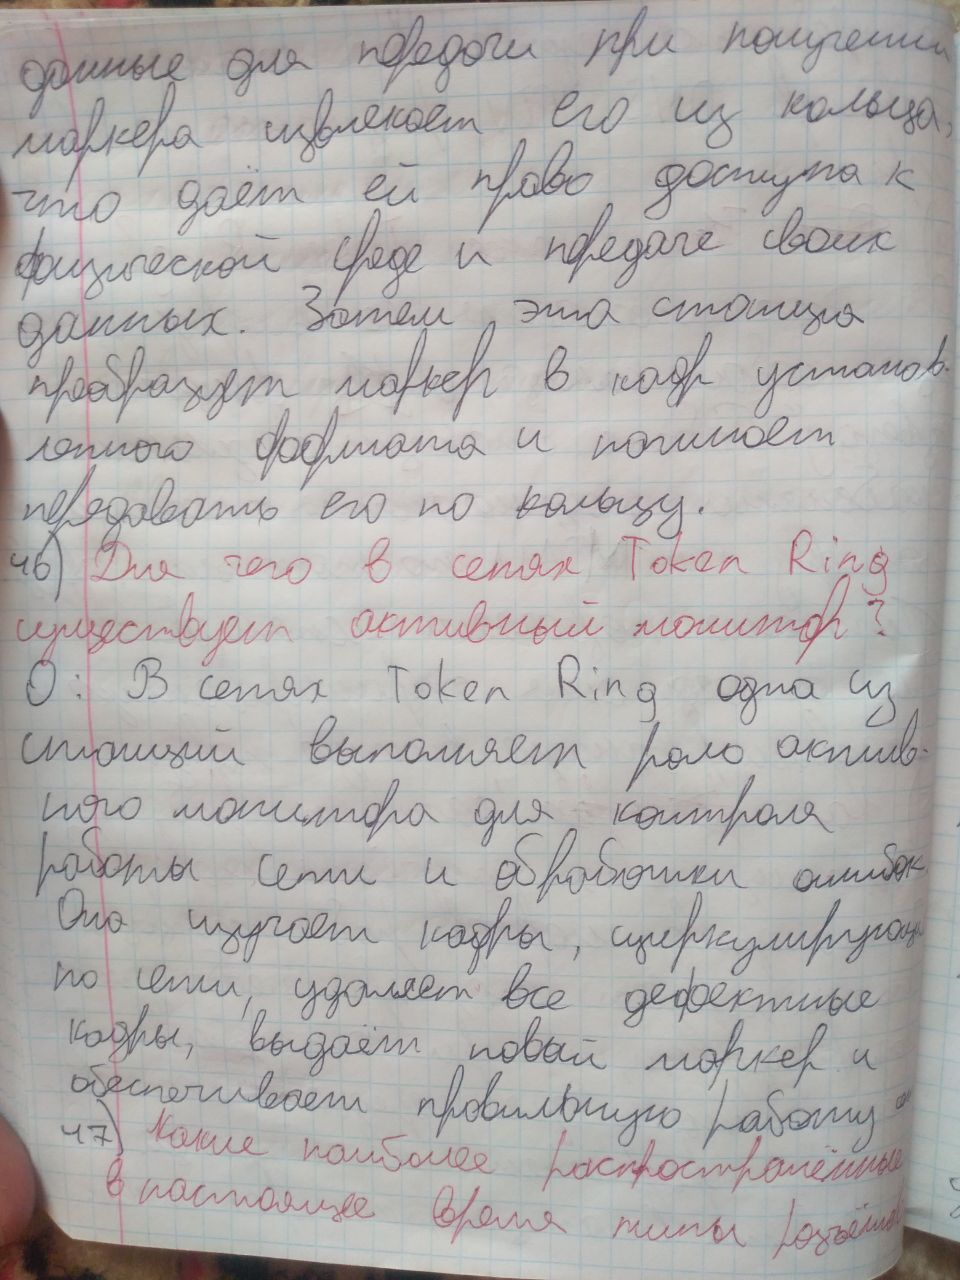 данные для передачи при получении
маркера извлекает его из кольца,
что даёт ей право доступа к
физической среде и передаче своих
данных. Затем эта станция
преобразует маркер в кадр установ-
ленного формата и начинает
передавать его по кольцу.
46) Для чего в сетях Token Ring
существует активный монитор?
О: В сетях Token Ring одна из
станций выполняет роль актив-
ного монитора для контроля
работы сети и обработки ошибок.
Она изучает кадры, циркулирующие
по сети, удаляет все дефектные
кадры, выдаёт новый маркер и
обеспечивает правильную работу
47) Какие наиболее распространённые
в настоящее время типы разъёмов